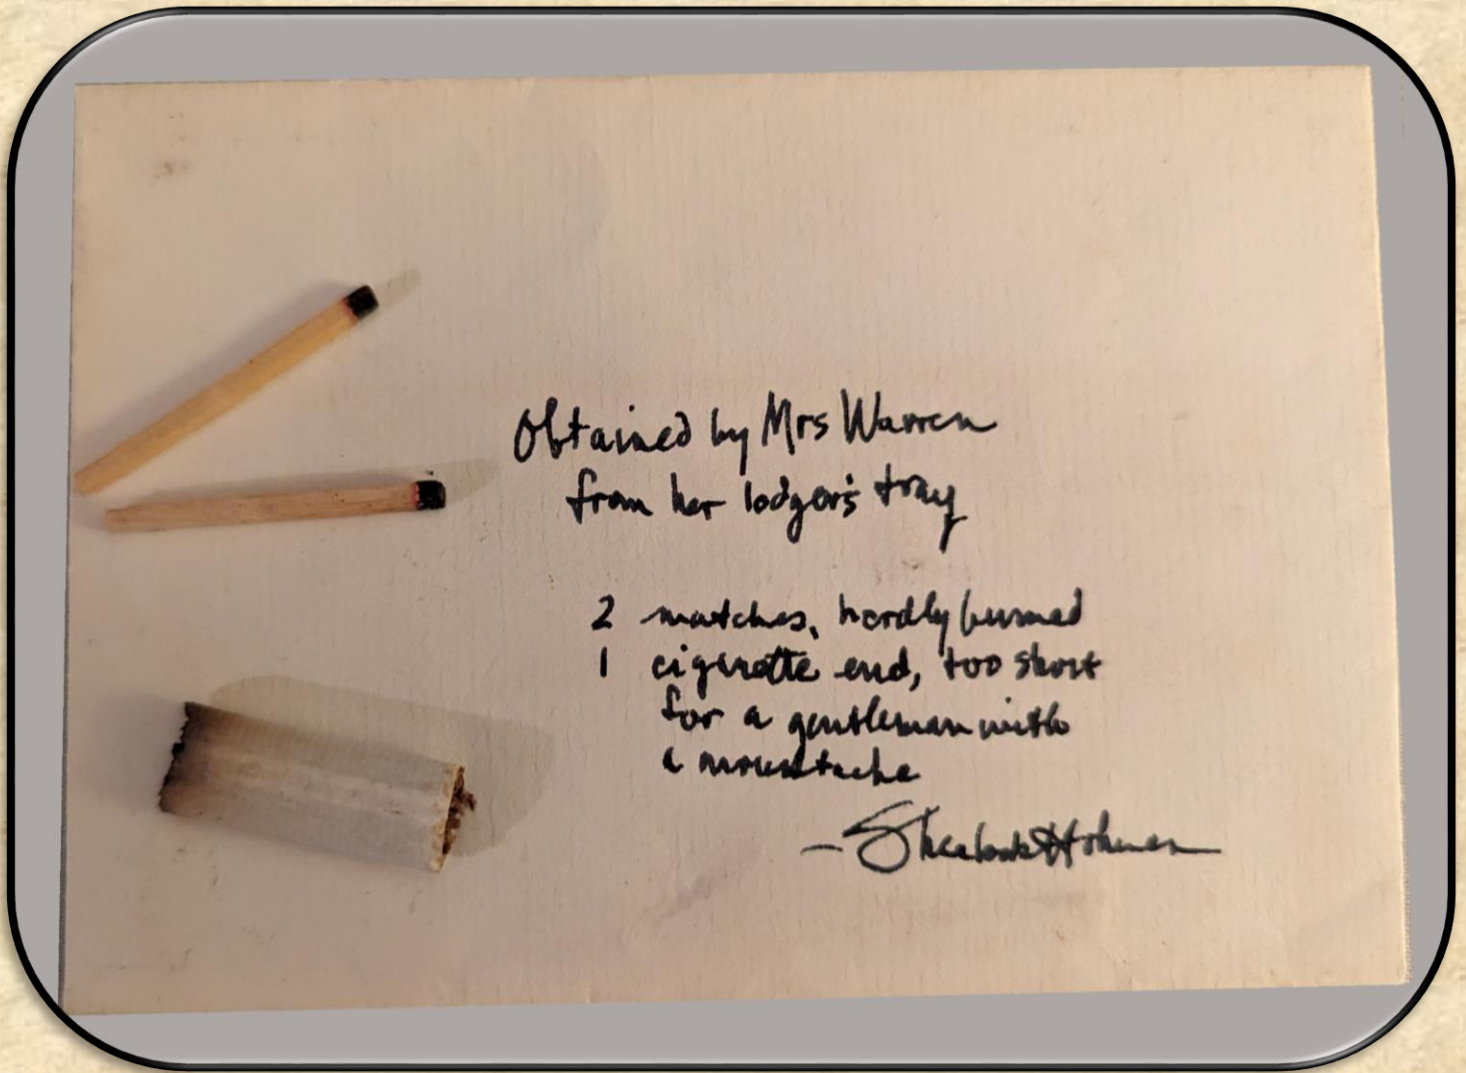 Obtained by Mrs Warren
from her lodger's tray
2 matches, hardly burned
1 cigarette end, too short
for a gentleman with
a moustache
– Sherlock Holmes